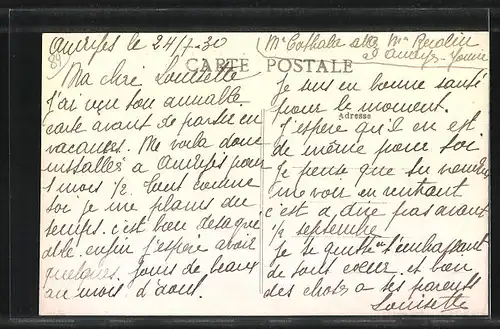 Andryes le 24/7-30
Mr Cathala chez Mme Rodin
à Andryes Yonne
89
CARTE POSTALE
Adresse
Ma chère Louisette
j'ai reçu ton aimable
carte avant de partir en
vacances. Me voila donc
installés a Andryes pour
1 mois 1/2. Tous comme
toi je me plains du
temps. c'est bien désagré
able. enfin j'espère avoir
quelques jours de beau
au mois d'aout.
Je suis en bonne santé
pour le moment.
J'espere qu'il en est
de même pour toi.
Je pense que tu viendras
me voir en rentrant
c'est a dire pas avant
1/2 septembre
Je te quitte en t'embrassant
de tout coeur et bien
des choses a tes parents
Louisette